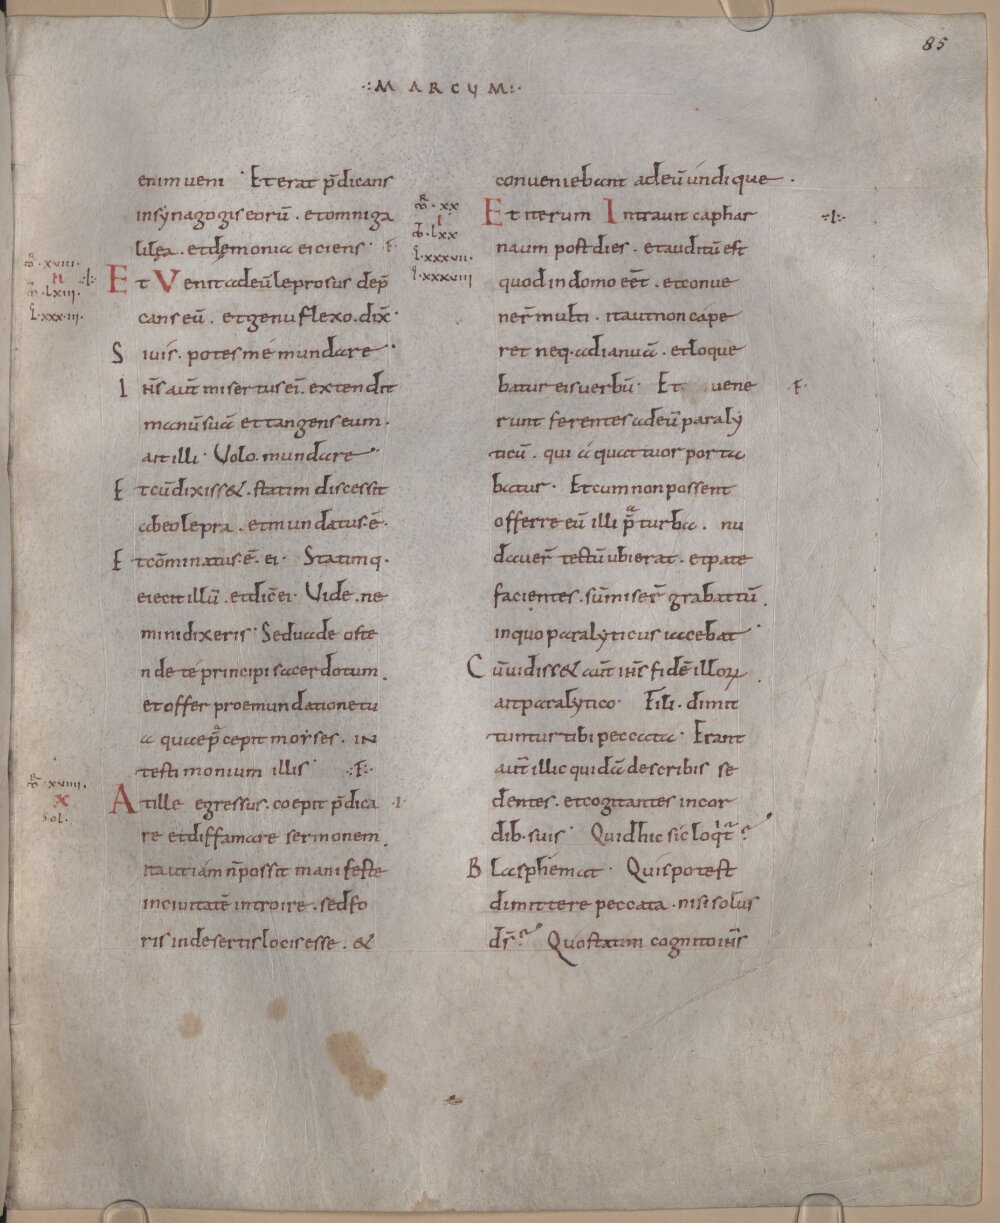 85
·:MARCUM:·
enim veni · Et erat p̄dicans
in synagogis eorū . et omni ga
lilęa . et dęmonia eiciens · F
m̄r · xviii ·
n ·I·
m̄t · lxiii ·
L · xxxiii ·
Et Venit ad eū leprosus dep̄
cans eū . et genu flexo . dix̄ ·
Si vis . potes me mundare ·
Ih̄s aut̄ misertus ei͛ . extendit
manū suā et tangens eum .
ait illi · Volo . mundare ·
Et cū dixiss& . statim discessit
ab eo lepra . et mundatus · ē ·
Et cōminatus · ē · ei · Statimq ·
eiecit illū . et dic̄ ei · Vide . ne
mini dixeris · Sed vade oste
nde te principi sacerdotum .
et offer pro emundatione tu
a quae p̄cepit moyses . in
testimonium illis · ·F·
m̄r · xviiii ·
x
sol .
At ille egressus . coepit p̄dica ·I·
re et diffamare sermonem .
ita ut iam n̄ possit manifeste
in civitatē introire . sed fo
ris in desertis locis esse . &
conveniebant ad eū undique .
m̄r · xx
I
m̄t · lxx
L · xxxvii ·
I · xxxviii
Et iterum Intravit caphar ·I·
naum post dies . et auditū est
quod in domo eēt . et conve
ner̄ multi . ita ut non cape
ret neq · ad ianuā . et loque
batur eis verbū · Et vene F·
runt ferentes ad eū paraly
ticū . qui a quattuor porta
batur . Et cum non possent
offerre eū illi p̄ turba . nu
daver̄ tectū ubi erat . et pate
facientes . sūmiser̄ grabattū .
in quo paralyticus iacebat ·
Cū vidiss& aut̄ ih̄s fidē illoꝝ .
ait paralytico · Fili . dimit
tuntur tibi peccata · Erant
aut̄ illic quidā de scribis se
dentes . et cogitantes in cor
dib · suis · Quid hic sic loqt̄ ?
Blasphemat · Quis potest
dimittere peccata . nisi solus
ds̄ ? Quo statim cognito ih̄s